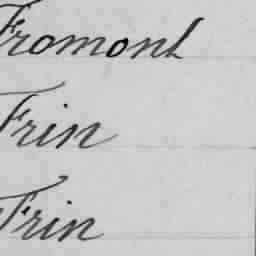 Fromont
Frin
Frin